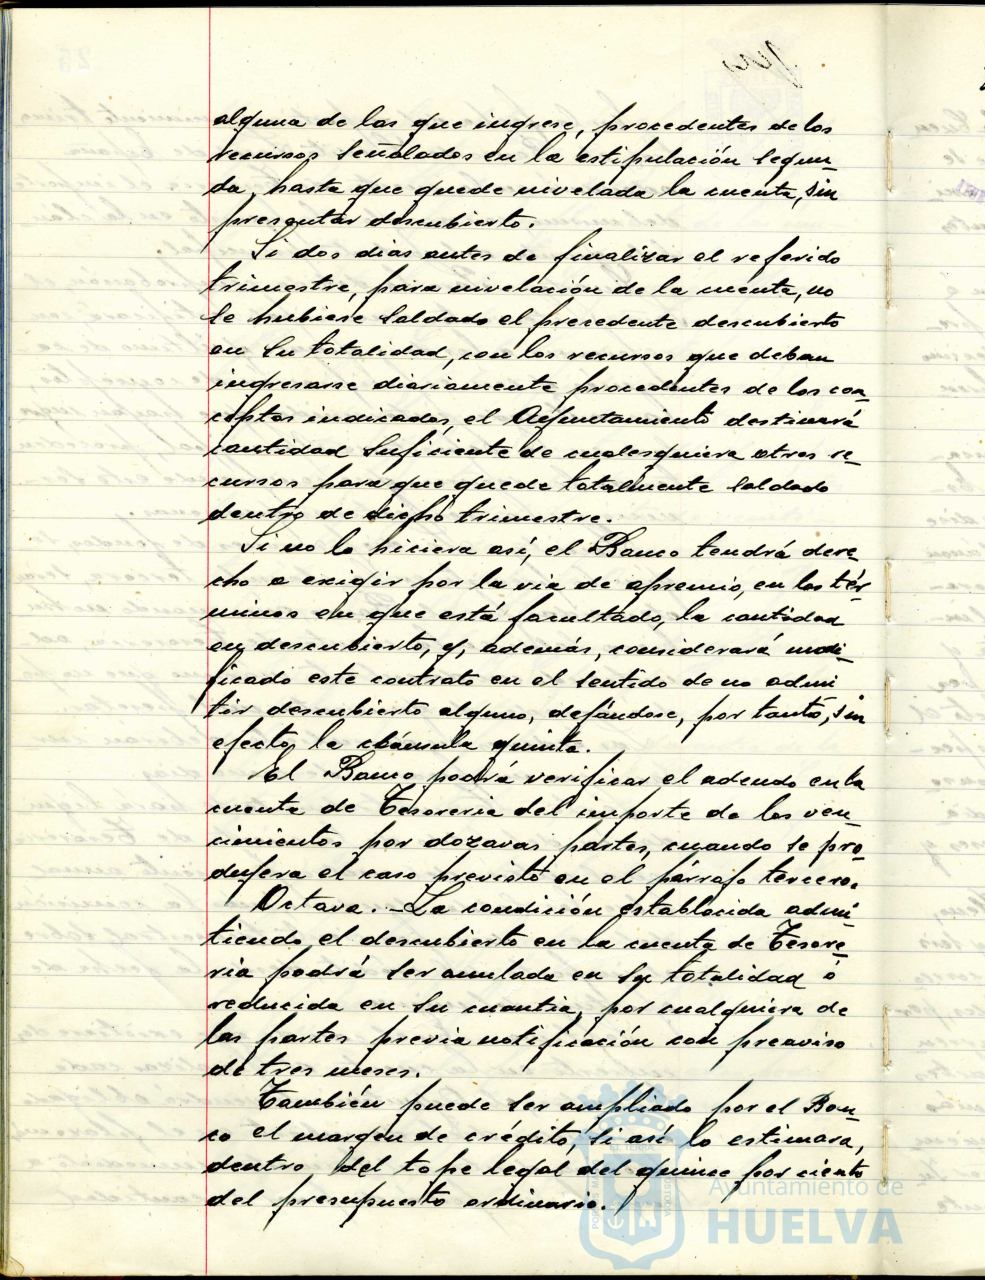 alguna de las que ingrese, procedentes de los
recursos señalados en la estipulación segun-
da, hasta que quede nivelada la cuenta, sin
presentar descubierto.
Si dos dias antes de finalizar el referido
trimestre, para nivelación de la cuenta, no
se hubiese saldado el precedente descubierto
en su totalidad, con los recursos que deban
ingresarse diariamente procedentes de los con-
ceptos indicados, el Ayuntamiento destinará
cantidad suficiente de cualesquiera otros re-
cursos para que quede totalmente saldado
dentro de dicho trimestre.
Si no lo hiciera así, el Banco tendrá dere-
cho a exigir por la via de apremio, en los tér-
minos en que está facultado, la cantidad
en descubierto, y, además, considerará modi-
ficado este contrato en el sentido de no admi
tir descubierto alguno, dejándose, por tanto, sin
efecto, la cláusula quinta.
El Banco podrá verificar el adeudo en la
cuenta de Tesoreria del importe de los ven-
cimientos por dozavas partes, cuando se pro-
dujera el caso previsto en el párrafo tercero.
Octava.- La condición establecida admi-
tiendo el descubierto en la cuenta de Tesore-
ria podrá ser anulada en su totalidad ó
reducida en su cuantia, por cualquiera de
las partes previa notificación con preaviso
de tres meses.
También puede ser ampliado por el Ban-
co el margen de crédito, si así lo estimara,
dentro del tope legal del quince por ciento
del presupuesto ordinario.
Ayuntamiento de
HUELVA